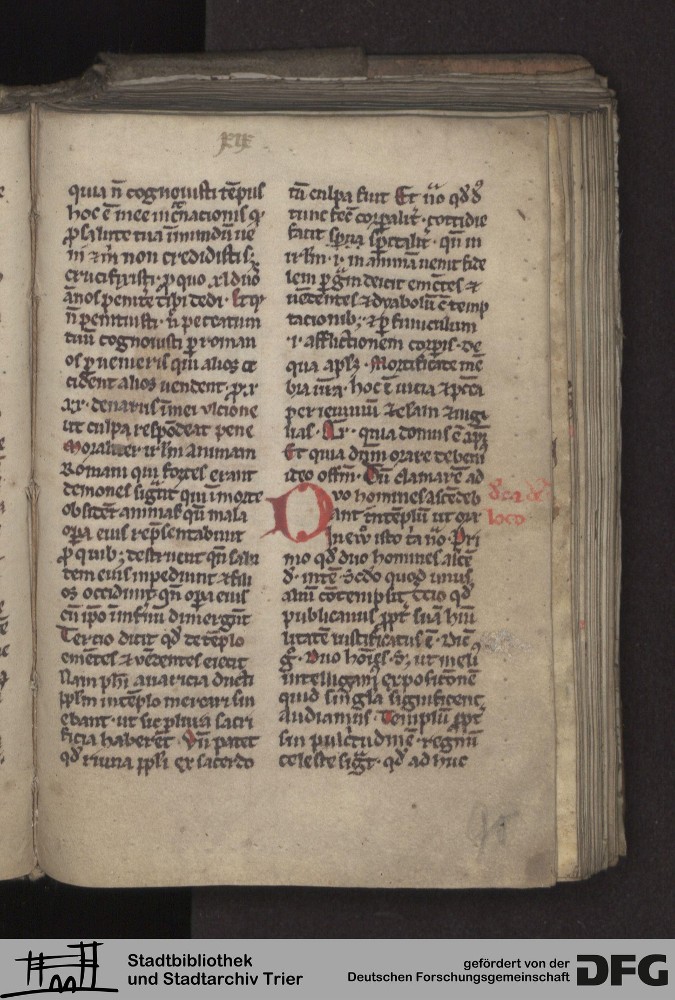 xix
quia n̄ cognouisti tēpus
hoc ē mee incͣnacionis q·
ꝓ salute tua ī mundū ue
ni ⁊ m̄ non credidisti s;
crucifixisti· ꝓ quo xl duo
ānos penitē tibi dedi·
n̄ penituisti· n̄ peccatum
tuū cognouisti ꝑ roman
os ꝑueneris qui alios oc
cident alios uendent·
xx· denariis ulcione
ut culpa respōdeat pene
Moraliter animam
Romani qui fortes erant
demones sigāt qui morte
obsidēt animas qn̄ mala
opa eius rep̄sentabunt
ꝓ quib; destruent qn̄
tem eius inpediunt ⁊ fili
os occidunt qn̄ opa eius
cū ip̄o īnfernū dimergūt
Tercio dicit qd̄ de tēplo
emētes ⁊ uēdentes eiecit
Nam phi auaricia ducti
in tēplo mercari sin
ebant· ut sic pluia sacri
ficia haberēt· Vn̄ patet
qd̄ riuna ppli ex sacerdo
tū culpa fuit Et
tunc fec̄ corpalit· cottidie
facit
animam uenit fide
lem deicit emētes ⁊
uēdentes ⁊ dyabolū ē temp
tacionib; ⁊ ꝑ funiculum
·i· afflictionem corpis· de
qua apls· Mortificate mē
bra ur̄a· hoc ē uicia ⁊ pctā
per ieiuniū ⁊ elam ⁊ uigi
lias· quia domus ē
Et quia dn̄m orare debem
ideo offm̄· Dū clamarē ad
Dvo homines ascēdeb
ant in tēplū ut ora
In eͣw̄ isto Pri
mo qd̄ duo homines ascē
unus
aliū cōtempsit
publicanus ꝓpt suā hūi
litatē iustificatus ē·
Duo hoīes ut meli
intelligam expositonē
quid singla significent
audiamus· Templū ꝓpt
sui pulcritudinē· regnū
celeste sigt· qd̄ adhuc
loco
95
Stadtbibliothek
und Stadtarchiv Trier
gefördert von der
Deutschen Forschungsgemeinschaft
DFG